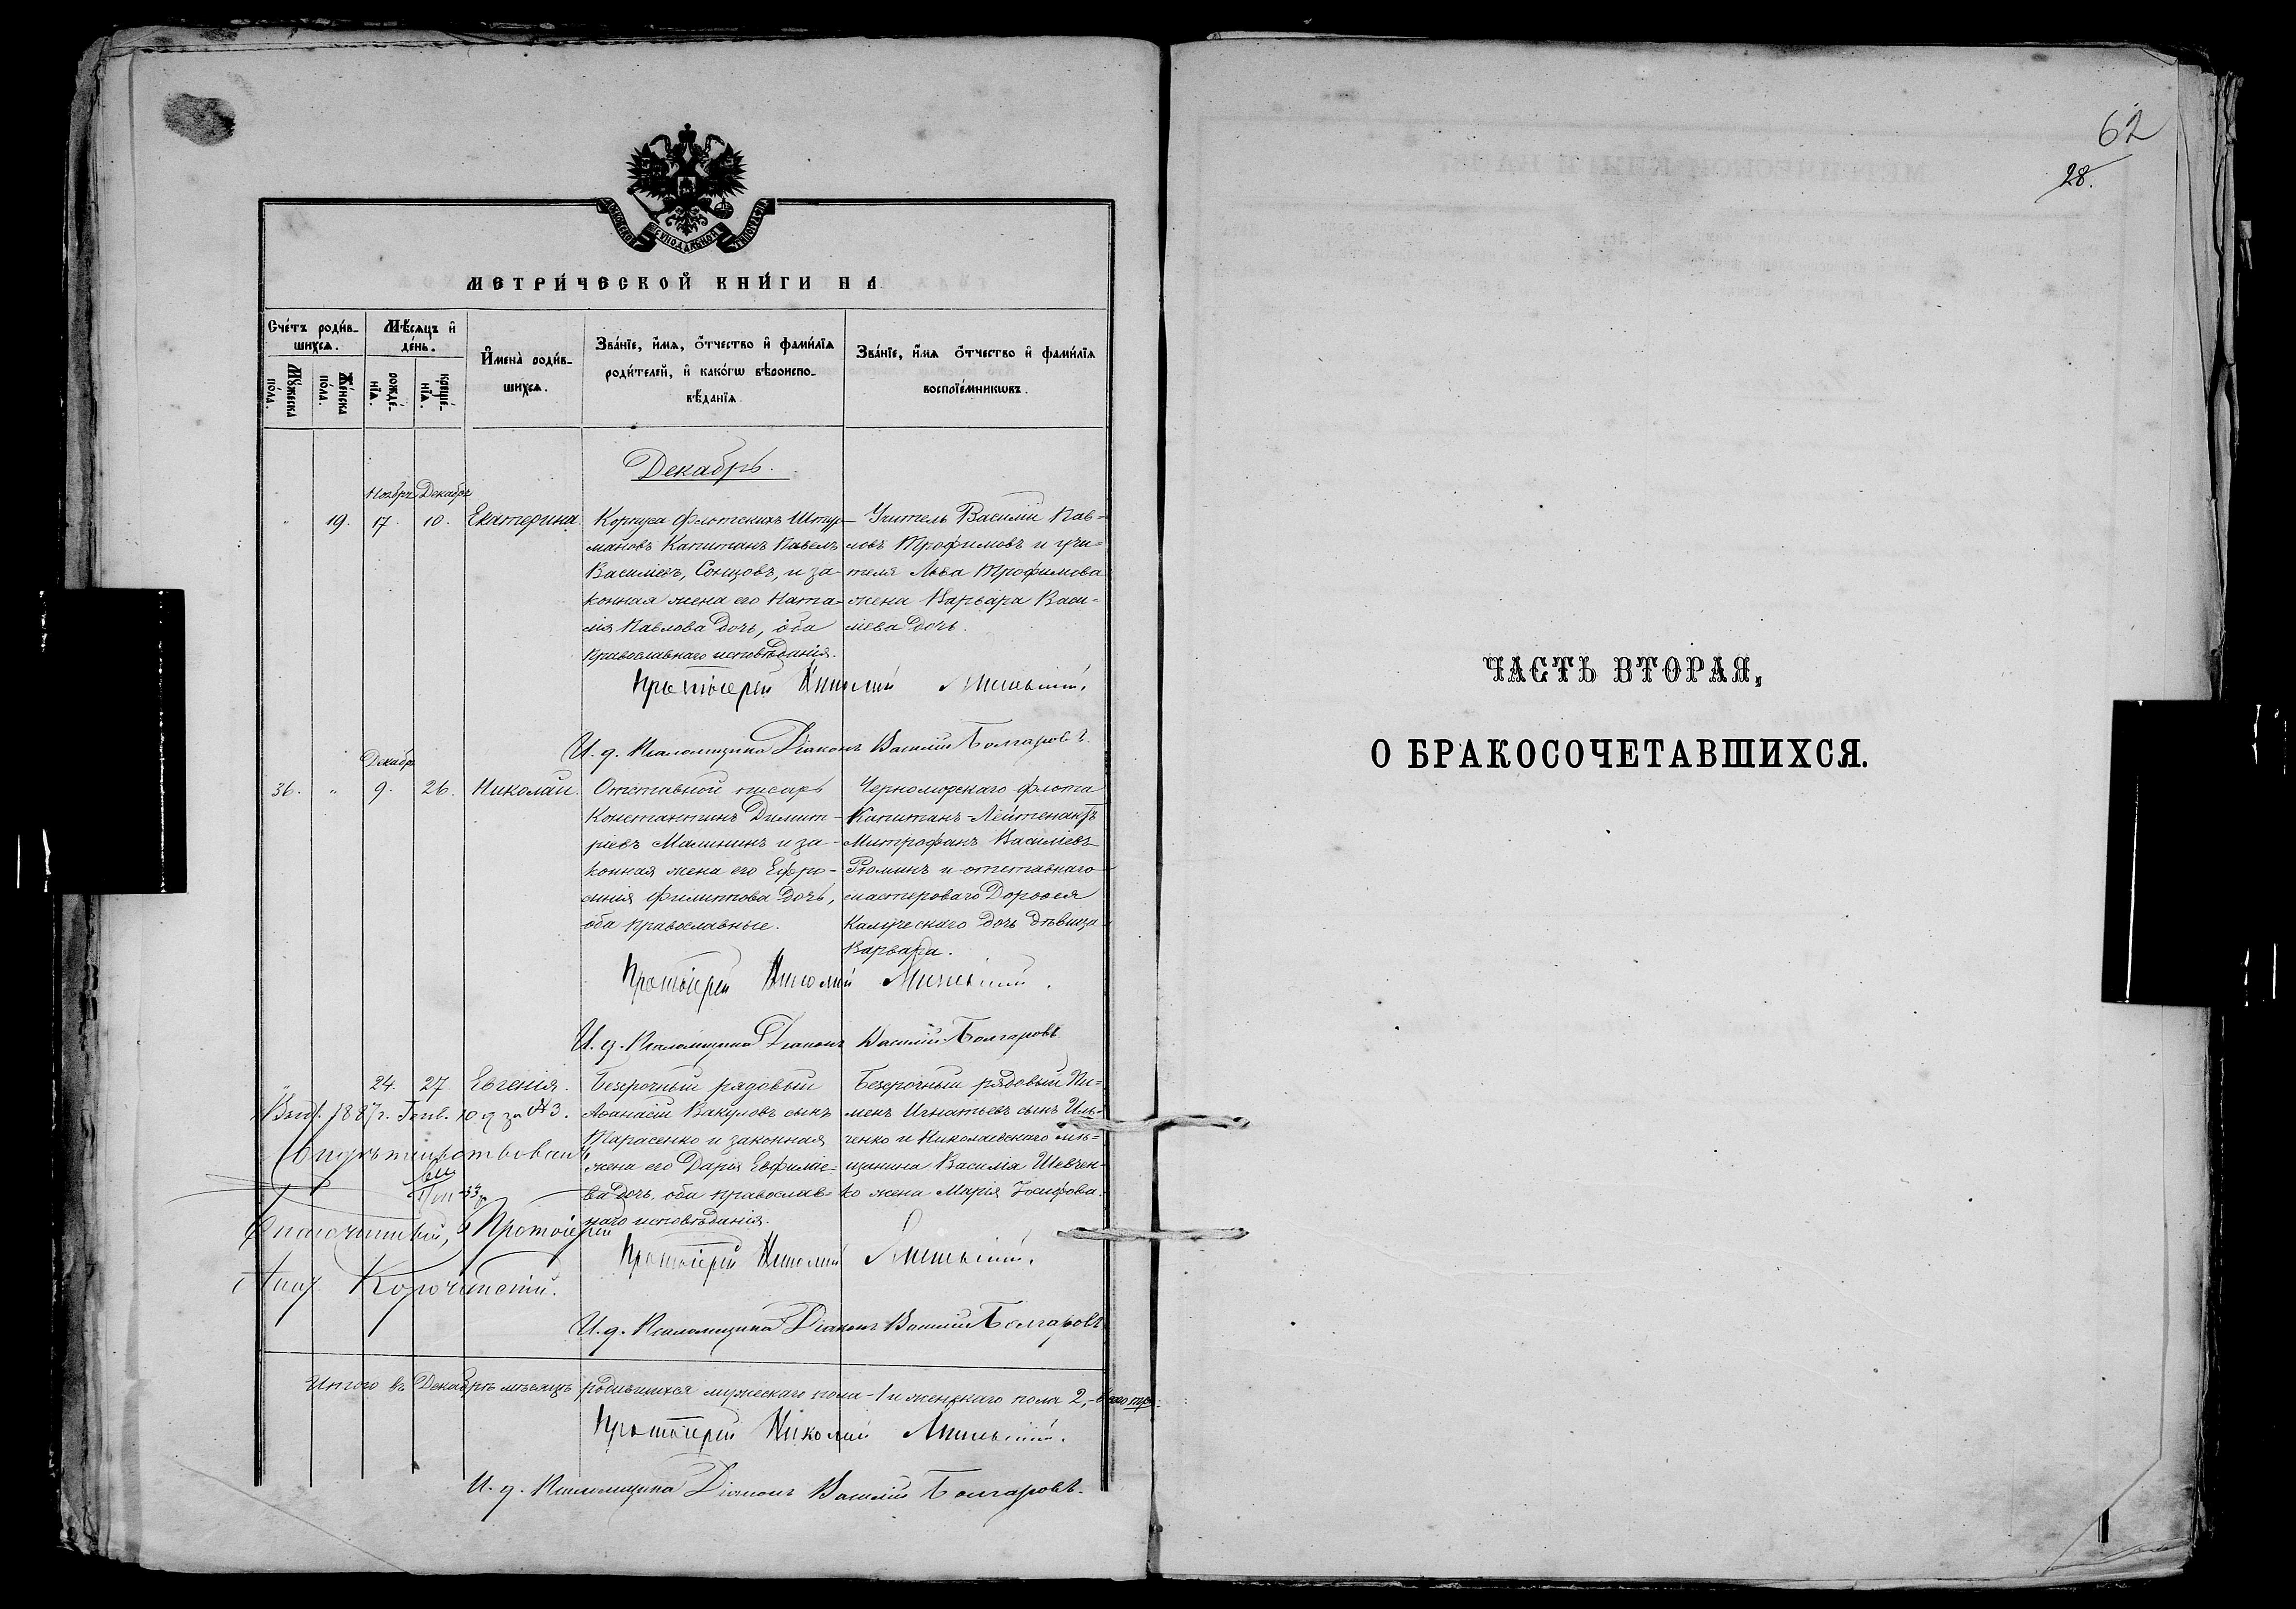 МЕТРИ́ЧЕСКОЙ КНИ́ГИ НА
Сче́тъ роди́в-
шихся.
Мѣ́сяцъ и҆
де́нь.
И҆мена̀ роди́в-
шихся.
Зва́нїе, и҆́мя, ѻ҆́тчество и҆ фами́лїя
роди́телей, и҆ како́гѡ вѣроиспо-
вѣ́данїя
Зва́нїе, и҆́мя ѻ҆́тчество и҆ фами́лїя
воспрїе́мникѡвъ.
Мꙋ́жеска
по́ла.
Же́нска
по́ла.
рожде́-
нїѧ.
креще́-
нїѧ.
Декабрь.
Ноябр. Декабр.
" 19. 17. 10. Екатерина.
Корпуса Флотскихъ Штур-
мановъ Капитанъ Павелъ
Василіевъ, Сонцовъ, и за-
конная жена его Ната-
лія Павлова дочь, оба
православнаго исповѣданія.
Учитель Василій Пав-
ловъ Трофимовъ и учи-
теля Льва Трофимова
жена Варвара Васи-
лиева дочь.
Протоіерей Николай
И. д. Псаломщика Діаконъ Василій Болгаровъ.
Декабр.
36. " 9. 26. Николай.
Отставной писарь
Константинъ Димит-
ріевъ Малининъ и за-
конная жена его Ефро-
синія Филиппова дочь,
оба православные.
Черноморскаго флота
Капитанъ-Лейтенантъ
Митрофанъ Василіевъ
Рюминъ и отставнаго
мастероваго Дороѳея
дочь дѣвица
Варвара.
Протоіерей Николай
И. д. Псаломщика Діаконъ Василій Болгаровъ
" 24. 27. Евгенія.
Безсрочный рядовый
Аѳанасій Вакуловъ сынъ
Тарасенко и законная
жена его Дарія Евфиміе-
ва дочь, оба православ-
наго исповѣданія.
Безсрочный рядовый Пи-
менъ Игнатьевъ сынъ Иль-
ченко и Николаевскаго мѣ-
щанина Василія Шевчен-
ко жена Марія Іосифова.
1887 г. Генв. 10 д. за № 3.
Свидѣтельствовалъ
Благочинный, Протоіерей
Протоіерей Николай
И. д. Псаломщика Діаконъ Василій Болгаровъ
Итого въ Декабрѣ мѣсяцѣ родившихся мужескаго пола - 1 и женскаго пола 2, - всего три.
Протоіерей Николай
И. д. Псаломщика Діаконъ Василій Болгаровъ.
62
28.
ЧАСТЬ ВТОРАЯ,
О БРАКОСОЧЕТАВШИХСЯ.